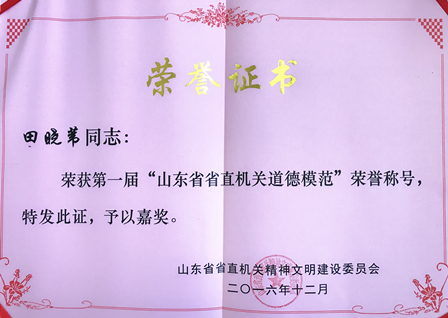 荣誉证书
田晓苇同志：
荣获第一届“山东省省直机关道德模范”荣誉称号，
特发此证，予以嘉奖。
山东省省直机关精神文明建设委员会
二〇一六年十二月